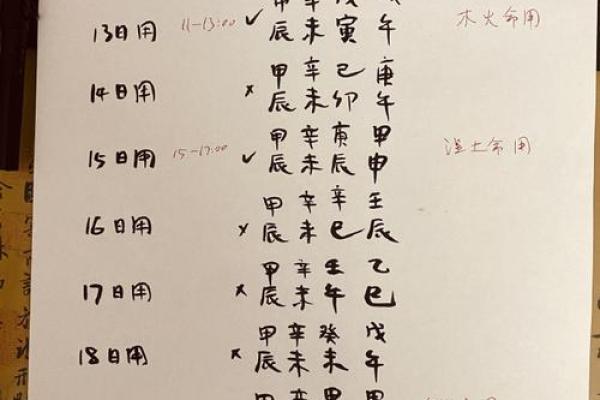 甲 辛 戊
13日用 11-13:00 ✓ 辰 未 寅 午 木火命用
甲 辛 己 庚
14日用 × 辰 未 卯 午
甲 辛 庚 甲
15日用 15-17:00 ✓ 辰 未 辰 申 湿土命用
甲 辛 辛 壬
16日用 × 辰 未 巳 辰
甲 辛 壬 乙
17日用 × 辰 未 午 巳
甲 辛 癸 戊
18日用 × 辰 未 未 午
甲 辛 甲 甲